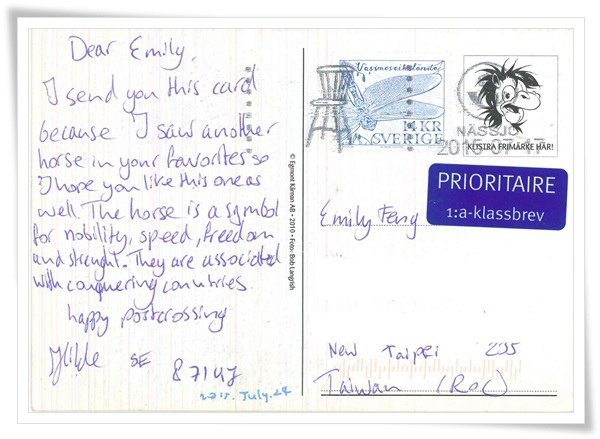 Dear Emily.
I send you this card
because I saw another
horse in your favorites so
I hope you like this one as
well. The horse is a symbol
for nobility, speed, freedom
and strenght. They are associated
with conquering countries.
happy postcrossing
SE
© Egmont Kärnan AB • 2010 • Foto: Bob Langrish
14 KR
SVERIGE
NÄSSJÖ
KLISTRA FRIMÄRKE HÄR!
PRIORITAIRE
1:a-klassbrev
Emily Feng
New Taipei 235
Taiwan (ROC)